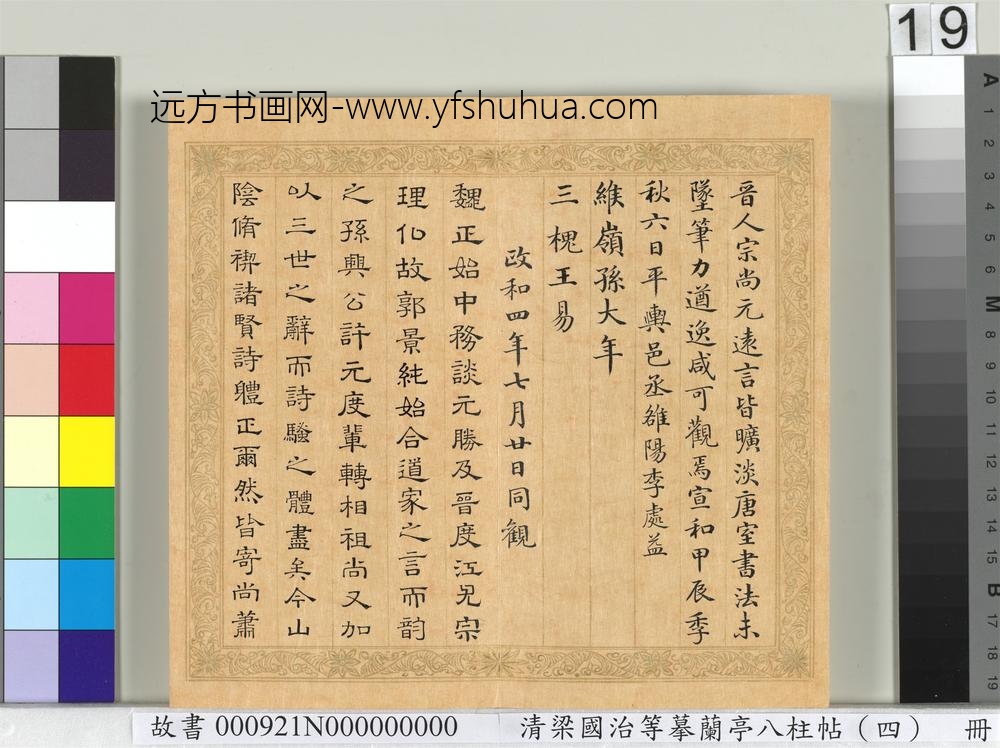 19
远方书画网-www.yfshuhua.com
晉人宗尚元遠言皆曠淡唐室書法未
墜筆力遒逸咸可觀焉宣和甲辰季
秋六日平輿邑丞雒陽李處益
維嶺孫大年
三槐王易
政和四年七月廿日同觀
魏正始中務談元勝及晉度江尤宗
理化故郭景純始合道家之言而韵
之孫興公許元度輩轉相祖尚又加
以三世之辭而詩騷之體盡矣今山
陰脩禊諸賢詩軆正爾然皆寄尚蕭
A
1
2
3
4
5
6
M
8
9
10
11
12
13
14
15
B
17
18
19
故書 000921N000000000 清梁國治等摹蘭亭八柱帖（四） 冊